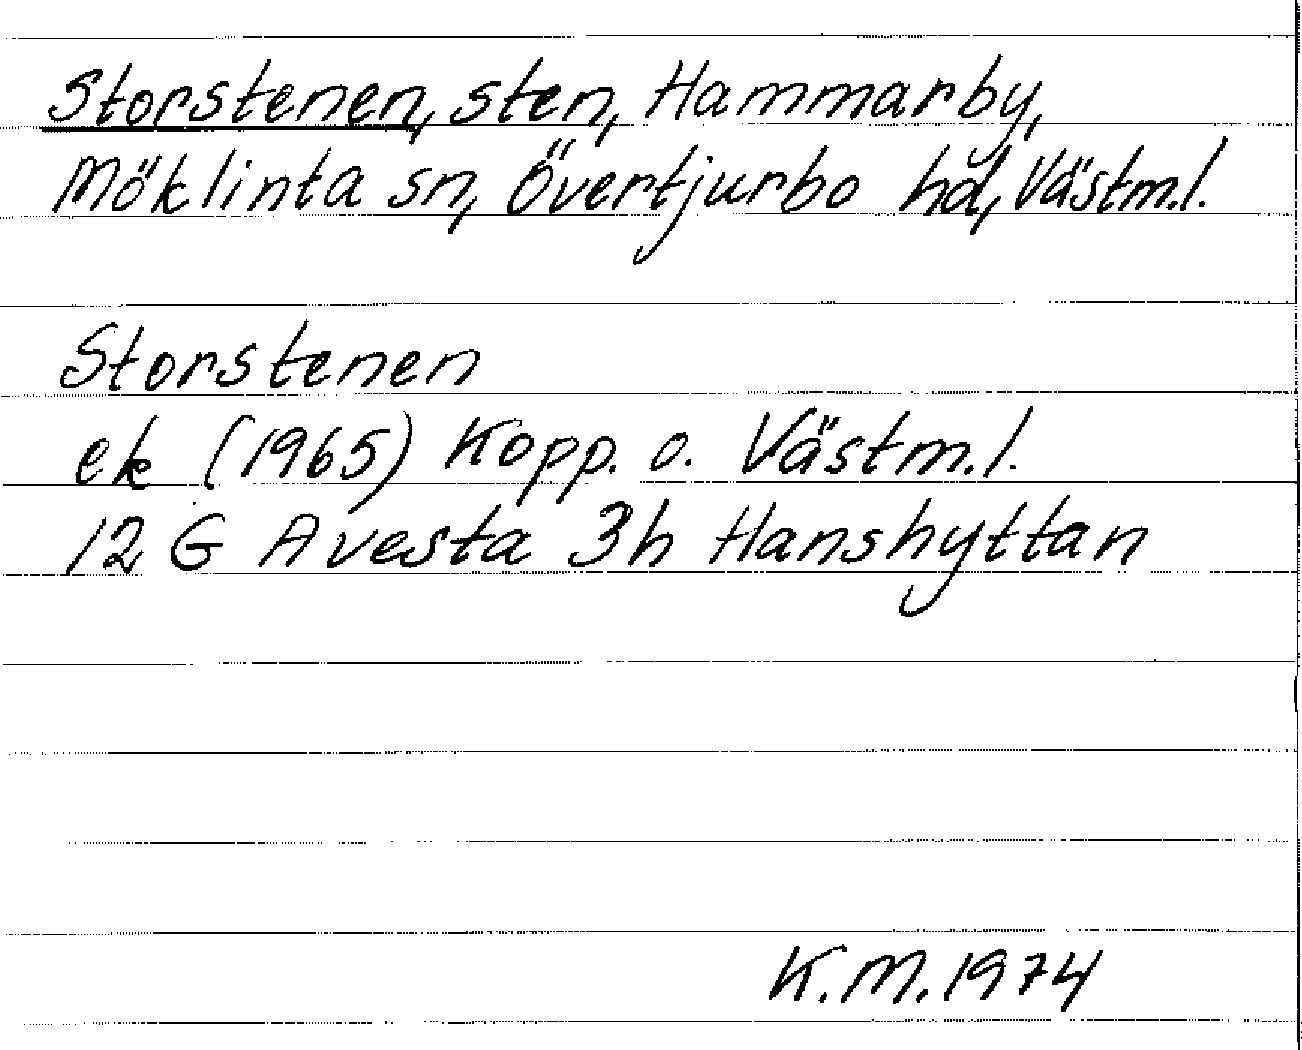 Storstenen, sten, Hammarby,
Möklinta sn, Övertjurbo hd, Västm.l.
Storstenen
ek (1965) Kopp. o. Västm.l.
12 G Avesta 3h Hanshyttan
K.M. 1974